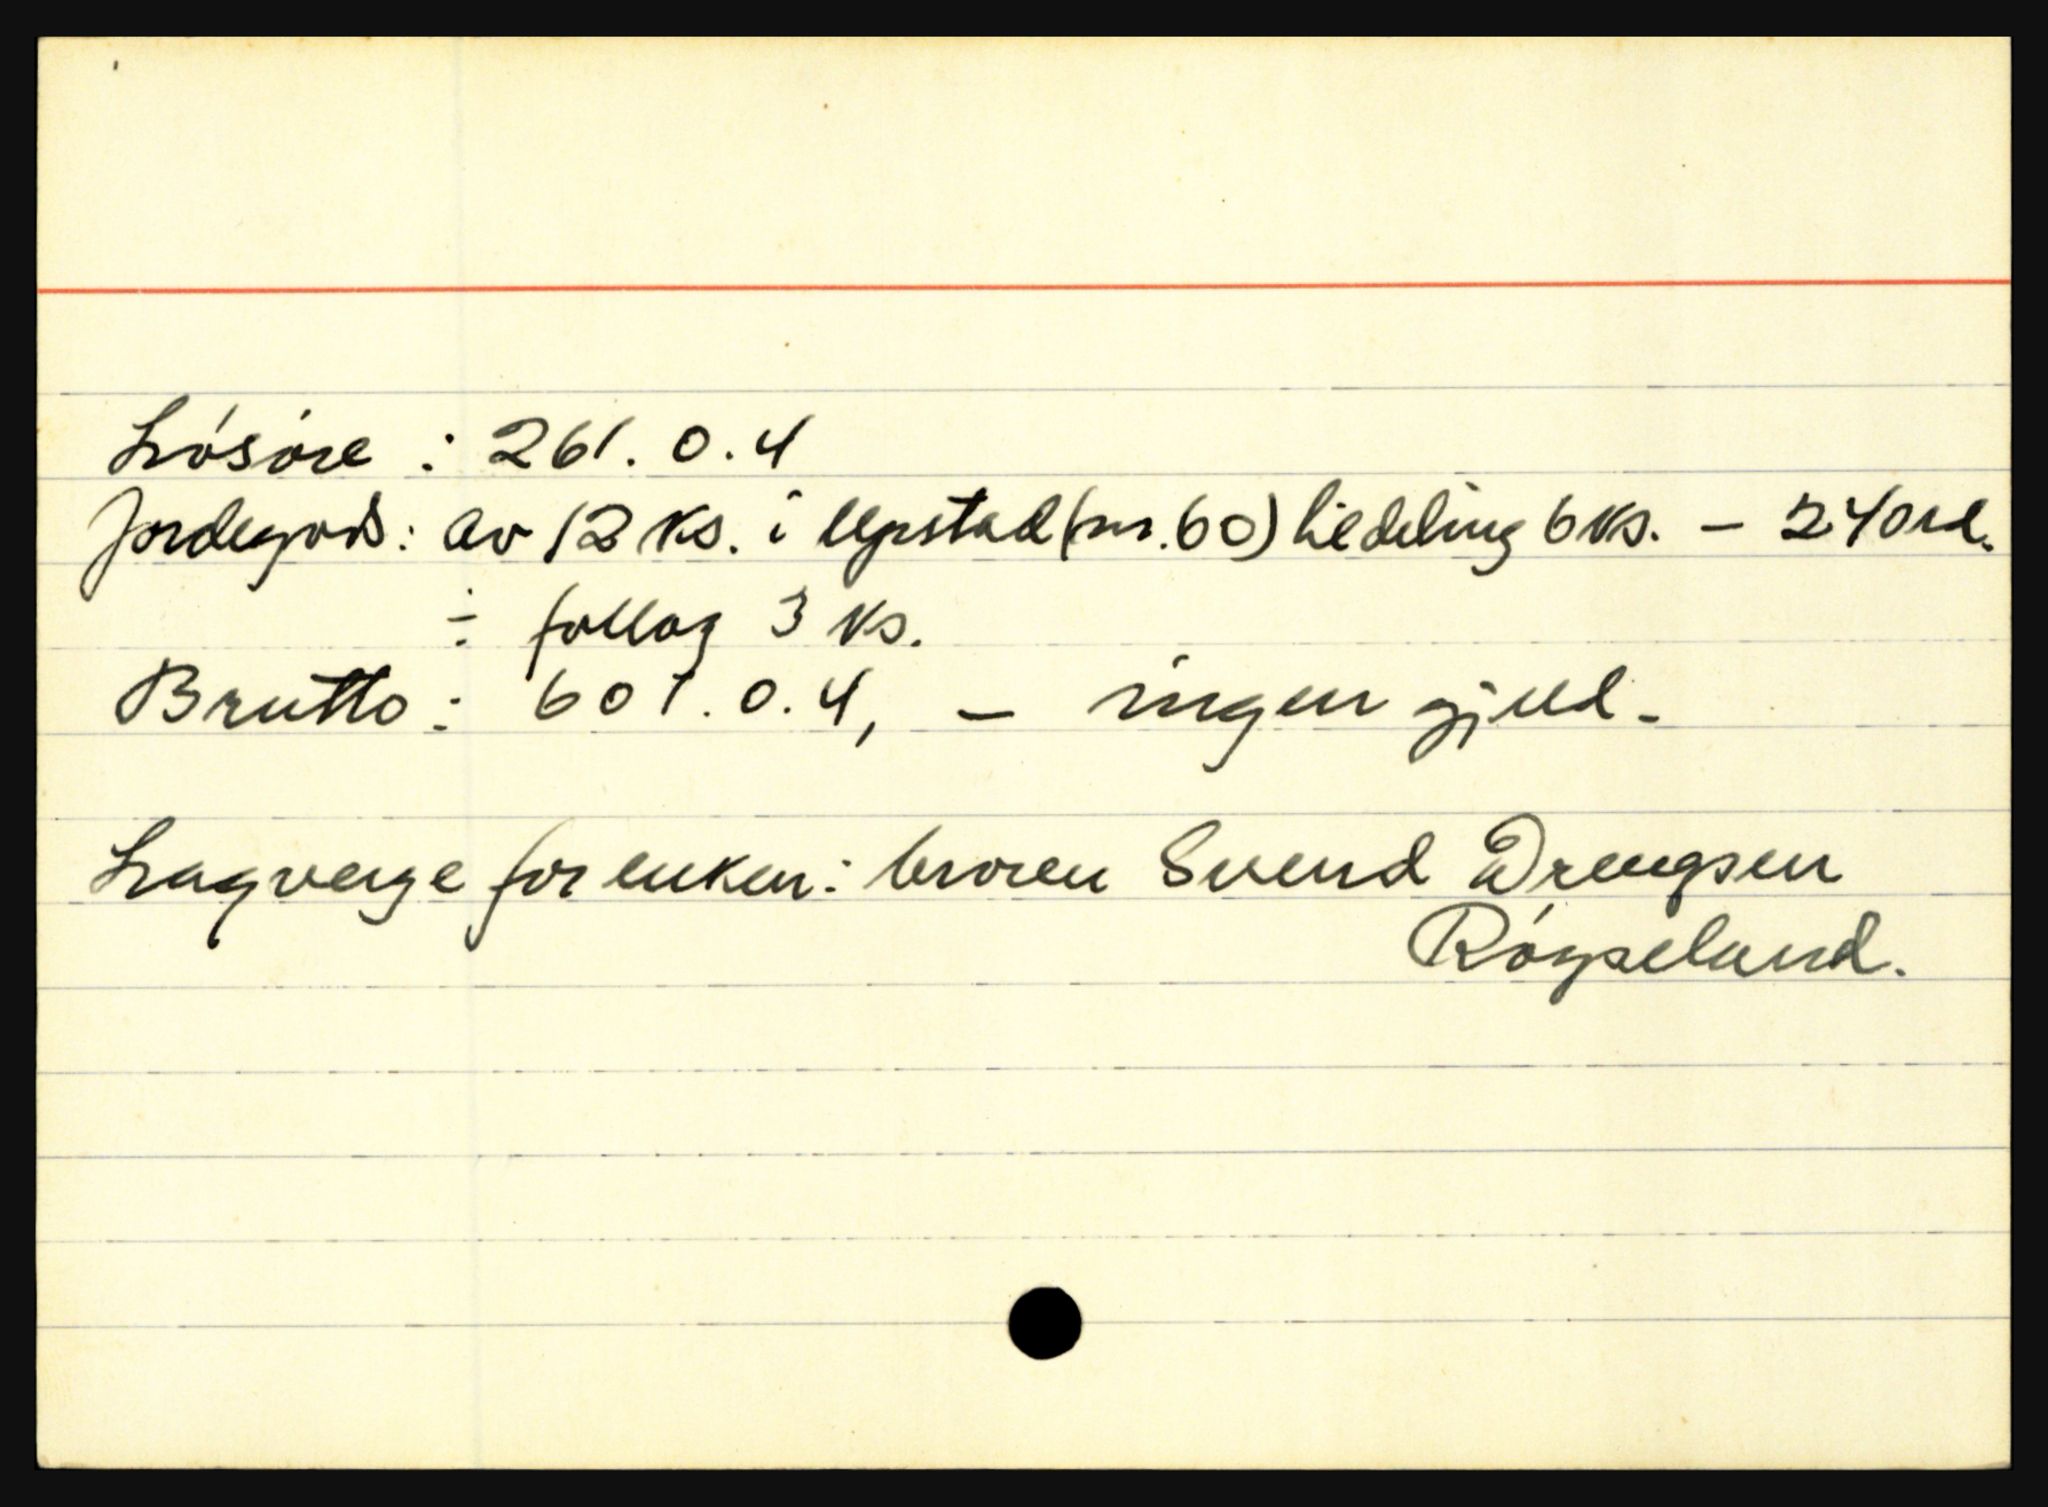 Lósóre : 261. 0. 4
Jordegods: av 12 ks. i Upstad (nr. 60) til deling 6 ks. – 240 rd.
÷ follog 3 ks.
Brutto : 601. 0. 4, – ingen gjeld.
Lagverge for enken: broren Svend Drengsen
Róyseland.